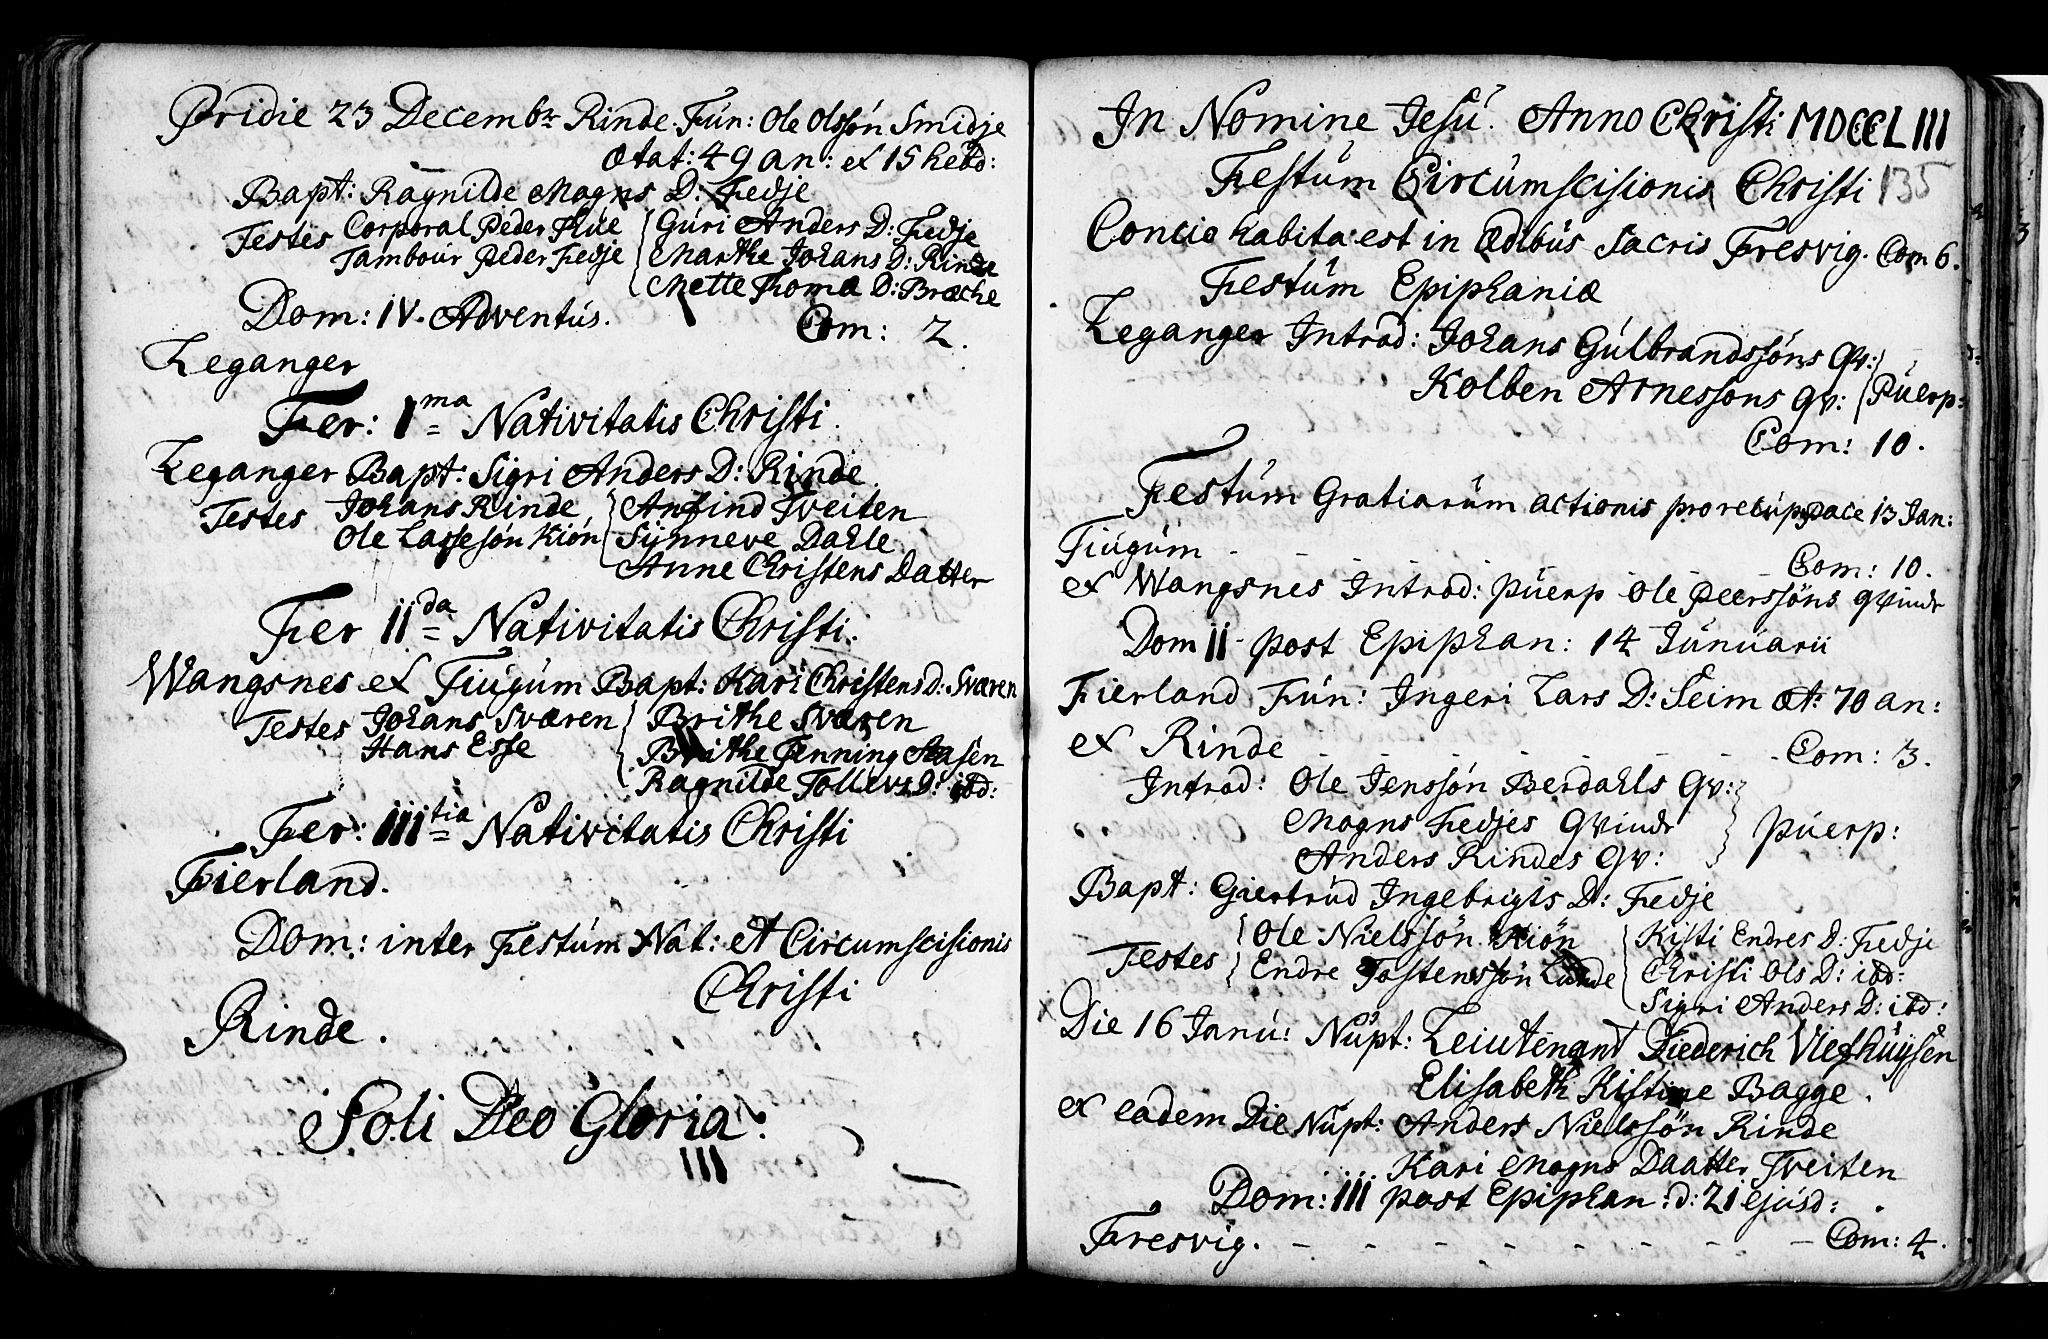 Pridie 23 Decembr Rinde. Fún: Ole Olssón Smidje
Ætat: 49 an: et 15 hebd:
Bapt: Ragnilde Mogns D: Fedje
Testes Corporal Peder Hue { Gúri Anders D: Fedje
Tamboúr Peder Fedje { Marthe Johans D: Rinde
Mette Thomæ D: Bræche
Dom: IV. Adventús. Com: 2.
Leganger
Fer: I ma Nativitatis Christi.
Leganger Bapt: Sigri Anders D: Rinde.
Testes Johans Rinde { Anfind Tveiten
Ole Lassesón Kión { Sÿnneve Dahle
Anne Christens Datter
Fer II da Nativitatis Christi.
Wangsnes et Tiúgúm Bapt: Kari Christens D: Sværen
Testes Johans Sværen { Brithe Sværen
Hans Esse { Brithe Henning
Ragnilde Tollevs D: ibd:
Fer: III tia Nativitatis Christi
Fierland.
Dom: inter Festúm Nat: et Circumscisionis
Christi
Rinde.
Soli Deo Gloria.
In Nomine Jesú. Anno Christi MDCCLIII
Festúm Circúmscisionis Christi 135
Concio habita est in Ædibús Sacris Fresvig. Com 6.
Festúm Epiphaniæ
Leganger Introd: Johans Gúlbrandssóns Qv: }
Kolben Arnessons qv: } Púerp:
Com: 10.
Festúm Gratiarúm actionis pro recúp pace 13 Jan:
Tiúgúm - - - - Com: 10.
et Wangsnes Introd: Púerp Ole Peerssóns qvindr
Dom II post Epiphan: 14 Janúarii
Fierland Fún: Ingeri Lars D: Seim æt: 70 an:
et Rinde - - - - Com: 3.
Introd: Ole Jenssón Berdahls Qv: }
Mogns Fedjes Qvindr } Púerp:
Anders Rindes Qv: }
Bapt: Giertrúd Ingebrigts D: Fedje
Testes { Ole Nielssón Kión { Kisti Endres D: Fedje
{ Endre Tostenssón Lúnde { Christi Ols D: ibd:
Sigri Anders D: ibd:
Die 16 Janú: Núpt: Leiutenant Diederich
Elisabeth Kistine Bagge.
et eadem Die Núpt: Anders Nielssón Rinde
Kari Mogns Daatter Tveiten
Dom: III post Epiphan: d: 21 ejúsd:
Fresvig. - - - - - - - Com: 4.